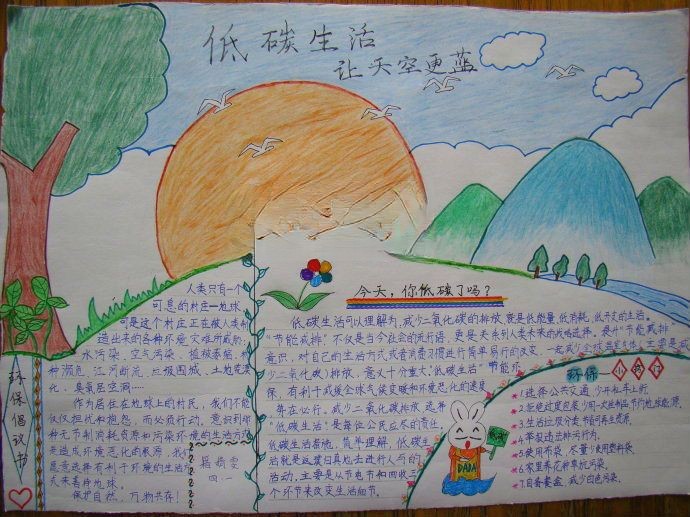 低碳生活
让天空更蓝
环保倡议书
人类只有一个
可息的村庄—地球
可是这个村庄正在被人类制
造出来的各种环境灾难所威胁:
水污染、空气污染、植被萎缩、物
种濒危、江河断流、垃圾围城、土地荒漠
化、臭氧层空洞……
作为居住在地球上的村民,我们不能
仅仅担忧和抱怨,而必须行动。意识到那
种无节制消耗资源和污染环境的生活方式
是造成环境恶化的根源,我们
愿意选择有利于环境的生活方
式来善待地球。
保护自然,万物共存!
四、一
今天,你低碳了吗?
低碳生活可以理解为,减少二氧化碳的排放,就是低能量、低消耗、低开支的生活。
"节能减排",不仅是当今社会的流行语,更是关系到人类未来的战略选择。提升"节能减排"
意识,对自己的生活方式或者消费习惯进行简单易行的改变,一起减少全球温室气体(主要是减
少二氧化碳)排放,意义十分重大。"低碳生活"节能环
保,有利于减缓全球气候变暖和环境恶化的速度,
势在必行。减少二氧化碳排放,选择
"低碳生活",是每位公民应尽的责任。
低碳生活
就是返璞归真地去进行人与的
活动,主要是从节电节和回收三
个环节来改变生活细节。
环保—小贴行
1.选择公共交通,少开私车上行
4.举报违法排污行为。
5.使用布袋,尽量少使用塑料袋。
6.家里养花种草抗污染。
7.自备餐盒,减少白色污染。
低碳
DADA